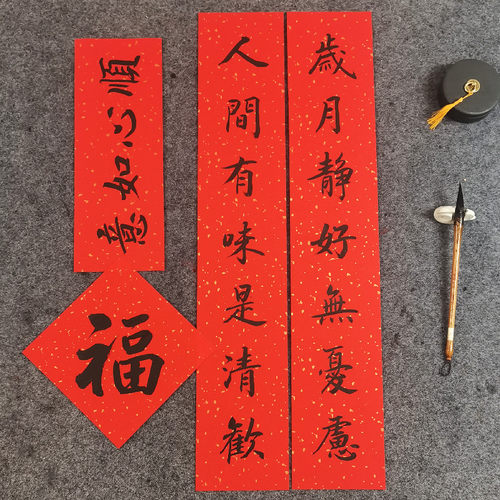 歲月靜好無憂慮
人間有味是清歡
順心如意
福